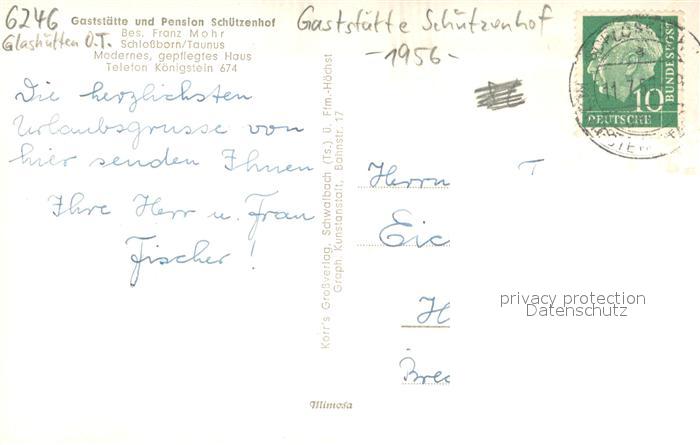 6246
Glashütten O.T.
Gaststätte und Pension Schützenhof
Bes. Franz Mohr
Schloßborn/Taunus
Modernes, gepflegtes Haus
Telefon Königstein 674
Gaststätte Schützenhof
-1956-
Die herzlichsten
Urlaubsgrüsse von
hier senden Ihnen
Ihre Herr u. Frau
Fischer!
Korr's Großverlag, Schwalbach (Ts.) Ü. Ffm.-Höchst
Graph. Kunstanstalt, Bahnstr. 17
Herrn T
Eic
H
Brec
privacy protection
Datenschutz
Mimosa
10
DEUTSCHE
BUNDESPOST